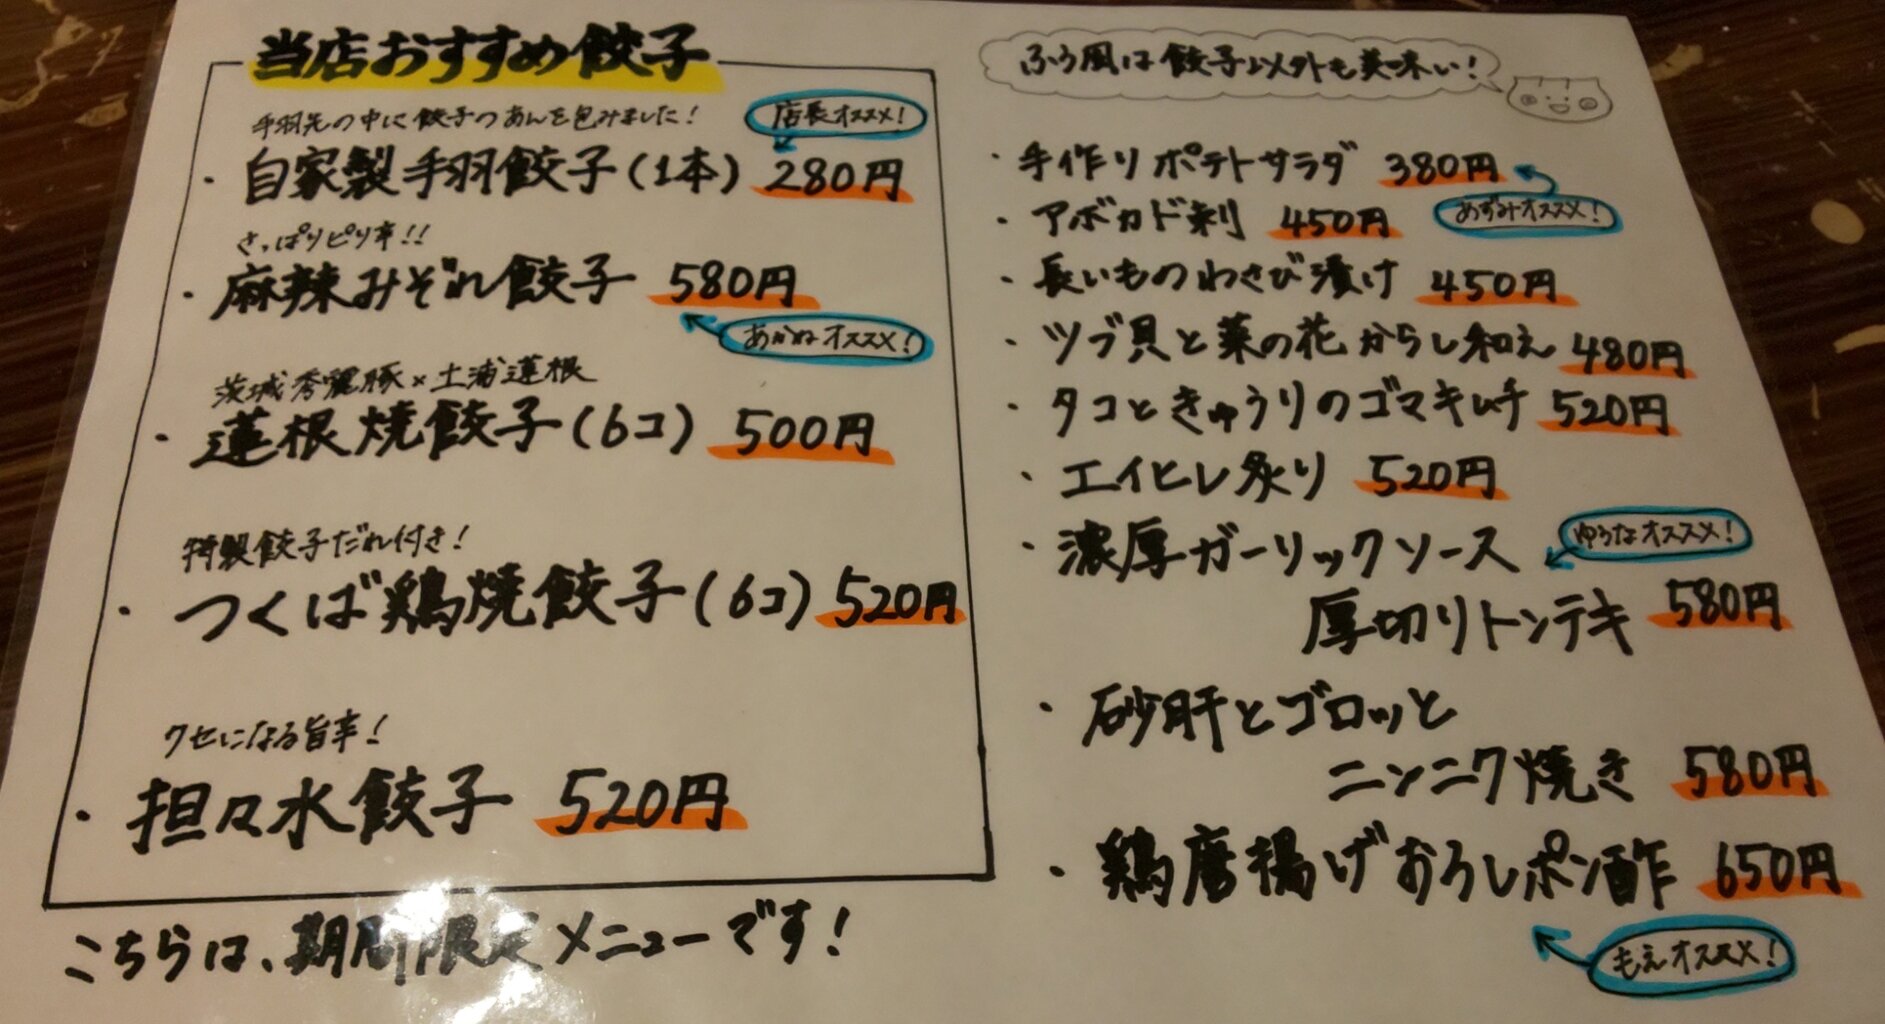 当店おすすめ餃子
手羽先の中に餃子のあんを包みました!
店長オススメ!
・自家製手羽餃子(1本) 280円
さっぱりピリ辛!!
・麻辣みぞれ餃子 580円
あかねオススメ!
茨城秀麗豚×土浦蓮根
・蓮根焼餃子(6コ) 500円
特製餃子だれ付き!
・つくば鶏焼餃子(6コ) 520円
クセになる旨辛!
・担々水餃子 520円
こちらは、期間限定メニューです!
ふう風は餃子以外も美味い!
・手作りポテトサラダ 380円
あずみオススメ!
・アボカド刺 450円
・長いものわさび漬け 450円
・ツブ貝と菜の花からし和え 480円
・タコときゅうりのゴマキムチ 520円
・エイヒレ炙り 520円
・濃厚ガーリックソース
ゆうなオススメ!
厚切りトンテキ 580円
・砂肝とゴロッと
ニンニク焼き 580円
・鶏唐揚げおろしポン酢 650円
もえオススメ!